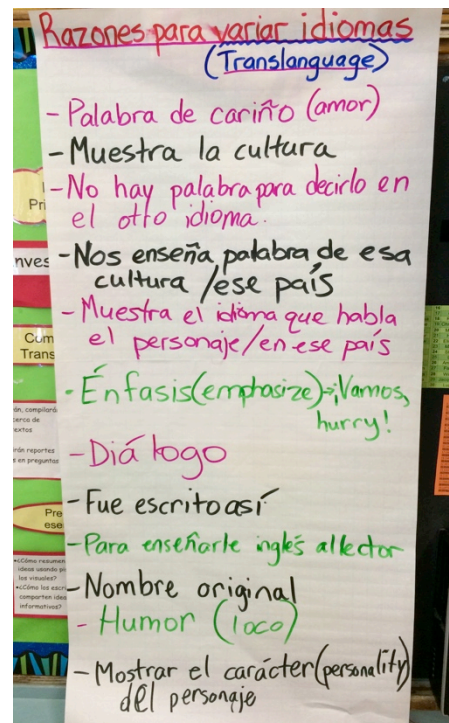 Razones para variar idiomas
(Translanguage)
- Palabra de cariño (amor)
- Muestra la cultura
- No hay palabra para decirlo en
el otro idioma.
- Nos enseña palabra de esa
cultura /ese país
- Muestra el idioma que habla
el personaje/en ese país
- Énfasis (emphasize) → ¡Vamos,
hurry!
- Diálogo
- Fue escrito así
- Para enseñarle inglés al lector
- Nombre original
- Humor (loco)
- Mostrar el carácter (personality)
del personaje
Pri
nves
Com
Trans
án, compilará
cerca de
extos
irán reportes
s en preguntas
Pre
ese
•¿Cómo resumen
ideas usando
los visuales?
•¿Cómo los escri
comparten idea
informativos?